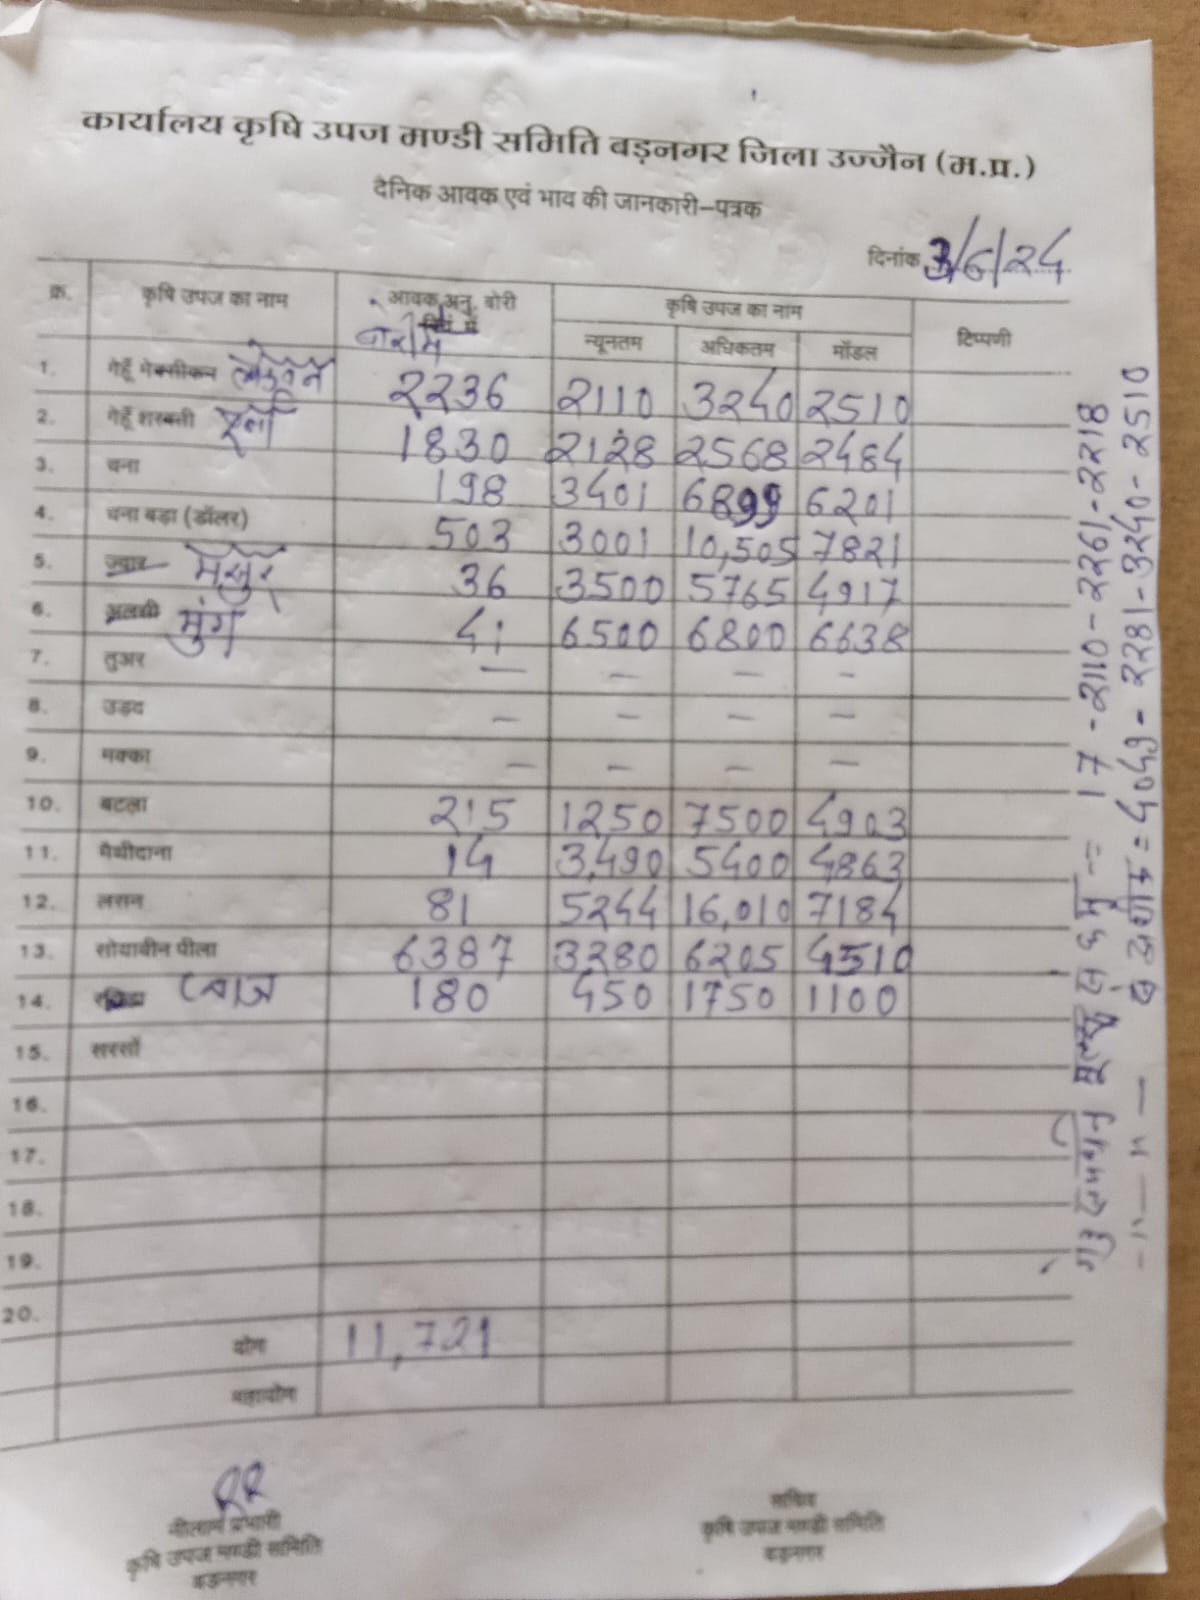 कार्यालय कृषि उपज मण्डी समिति बड़नगर जिला उज्जैन (म.प्र.)
दैनिक आवक एवं भाव की जानकारी-पत्रक
दिनांक 3/6/24
क्र. कृषि उपज का नाम आवक अनु. बोरी में कृषि उपज का नाम टिप्पणी
न्यूनतम अधिकतम मॉडल
1. गेहूँ मेक्सीकन लोकवन 2236 2110 3240 2510
2. गेहूँ शरबती 1830 2128 2568 2484
3. चना 198 3401 6899 6201
4. चना बड़ा (डॉलर) 503 3001 10,505 7821
5. ज्वार मसुर 36 3500 5765 4917
6. अलसी मुंग 41 6500 6800 6638
7. तुअर — — — —
8. उड़द — — — —
9. मक्का — — — —
10. बटला 215 1250 7500 4903
11. मैथीदाना 14 3,490 5400 4863
12. लसन 81 5244 16,010 7184
13. सोयाबीन पीला 6387 3280 6205 4510
14. प्याज 180 450 1750 1100
15. सरसों
16.
17.
18.
19.
20.
योग 11,721
महायोग
17 - 2110 - 2261 - 2218
-"- "- = 4049 - 2281 - 3240 - 2510
RR
नीलाम प्रभारी
कृषि उपज मण्डी समिति
बड़नगर
सचिव
कृषि उपज मण्डी समिति
बड़नगर